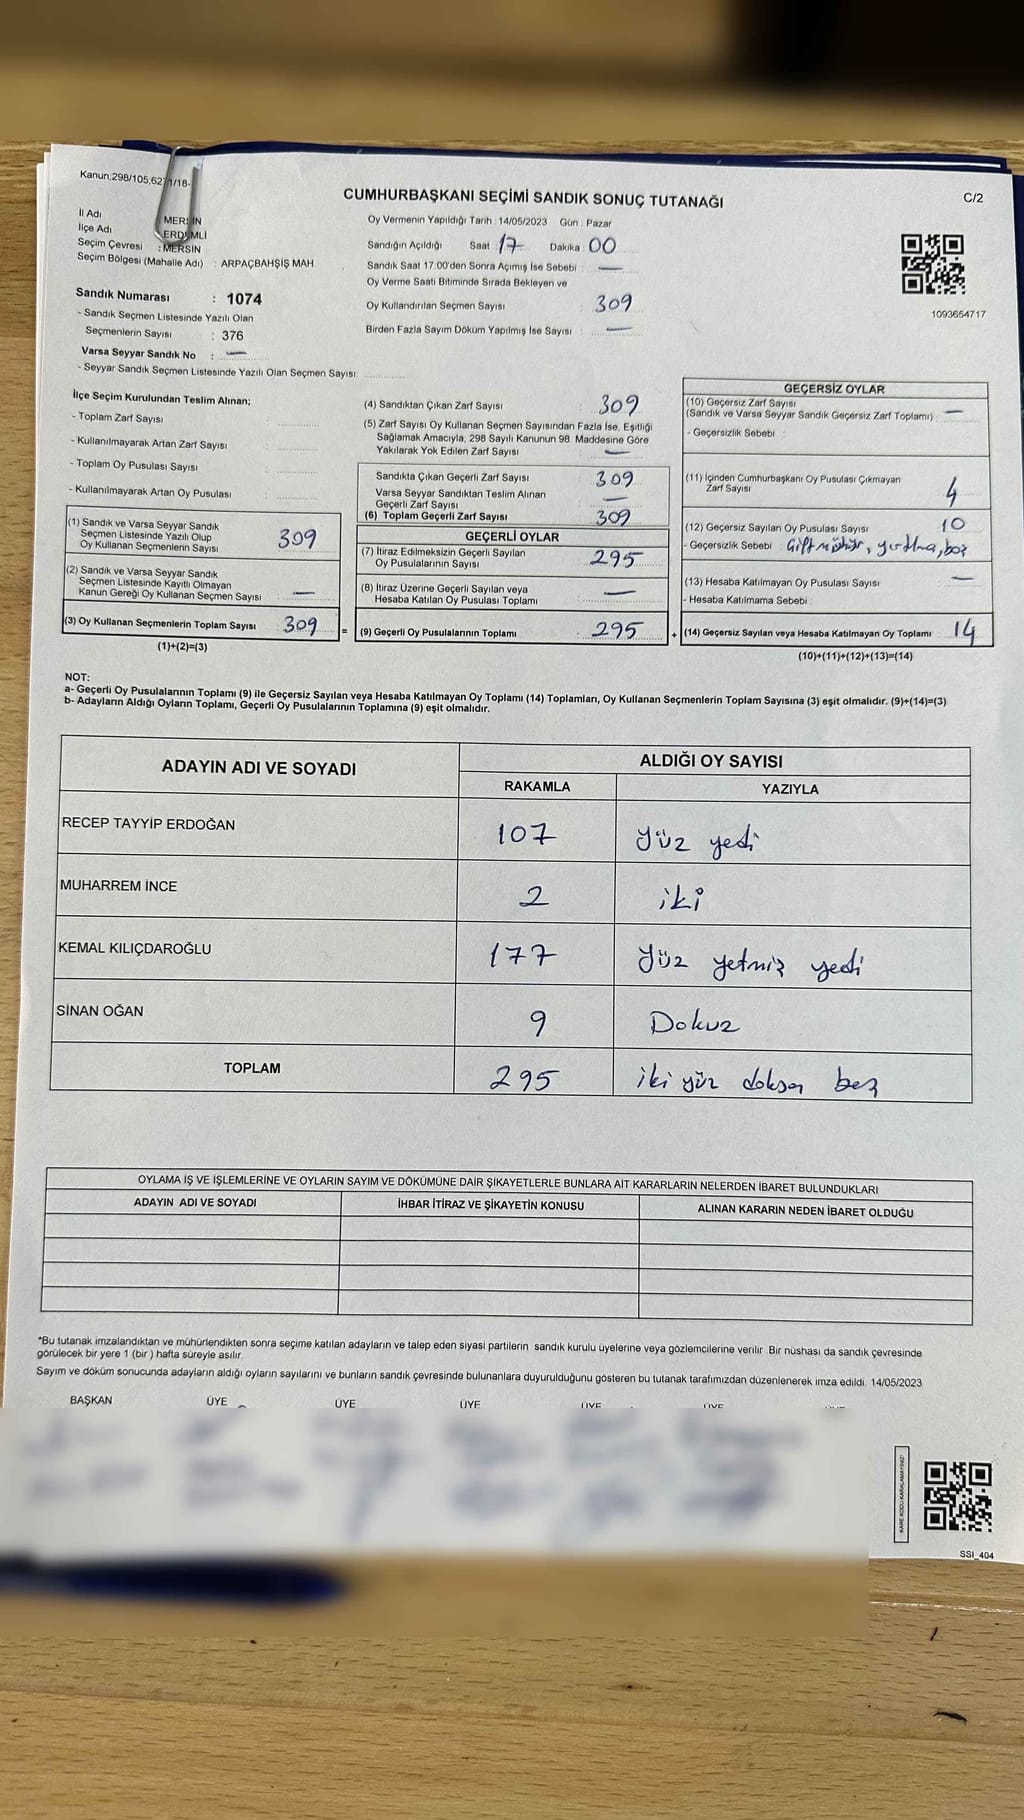 Kanun;298/105,627
1/18-
C/2
CUMHURBAŞKANI SEÇİMİ SANDIK SONUÇ TUTANAĞI
İl Adı MERSİN
İlçe Adı ERDEMLİ
Seçim Çevresi : MERSİN
Seçim Bölgesi (Mahalle Adı) : ARPAÇBAHŞİŞ MAH.
Sandık Numarası : 1074
- Sandık Seçmen Listesinde Yazılı Olan
Seçmenlerin Sayısı : 376
Varsa Seyyar Sandık No : —
- Seyyar Sandık Seçmen Listesinde Yazılı Olan Seçmen Sayısı:
Oy Vermenin Yapıldığı Tarih : 14/05/2023 Gün : Pazar
Sandığın Açıldığı Saat : 17 Dakika : 00
Sandık Saat 17.00'den Sonra Açımış İse Sebebi : —
Oy Verme Saati Bitiminde Sırada Bekleyen ve
Oy Kullandırılan Seçmen Sayısı : 309
Birden Fazla Sayım Döküm Yapılmış İse Sayısı : —
1093654717
İlçe Seçim Kurulundan Teslim Alınan;
- Toplam Zarf Sayısı
- Kullanılmayarak Artan Zarf Sayısı
- Toplam Oy Pusulası Sayısı
- Kullanılmayarak Artan Oy Pusulası
(1) Sandık ve Varsa Seyyar Sandık
Seçmen Listesinde Yazılı Olup
Oy Kullanan Seçmenlerin Sayısı : 309
(2) Sandık ve Varsa Seyyar Sandık
Seçmen Listesinde Kayıtlı Olmayan
Kanun Gereği Oy Kullanan Seçmen Sayısı : —
(3) Oy Kullanan Seçmenlerin Toplam Sayısı : 309
(1)+(2)=(3)
(4) Sandıktan Çıkan Zarf Sayısı : 309
(5) Zarf Sayısı Oy Kullanan Seçmen Sayısından Fazla İse, Eşitliği
Sağlamak Amacıyla; 298 Sayılı Kanunun 98. Maddesine Göre
Yakılarak Yok Edilen Zarf Sayısı : —
Sandıkta Çıkan Geçerli Zarf Sayısı : 309
Varsa Seyyar Sandıktan Teslim Alınan
Geçerli Zarf Sayısı : —
(6) Toplam Geçerli Zarf Sayısı : 309
GEÇERLİ OYLAR
(7) İtiraz Edilmeksizin Geçerli Sayılan
Oy Pusulalarının Sayısı : 295
(8) İtiraz Üzerine Geçerli Sayılan veya
Hesaba Katılan Oy Pusulası Toplamı : —
= (9) Geçerli Oy Pusulalarının Toplamı : 295
GEÇERSİZ OYLAR
(10) Geçersiz Zarf Sayısı
(Sandık ve Varsa Seyyar Sandık Geçersiz Zarf Toplamı) : —
- Geçersizlik Sebebi :
(11) İçinden Cumhurbaşkanı Oy Pusulası Çıkmayan
Zarf Sayısı : 4
(12) Geçersiz Sayılan Oy Pusulası Sayısı : 10
- Geçersizlik Sebebi : Çift mühür, yırtılma, boş
(13) Hesaba Katılmayan Oy Pusulası Sayısı : —
- Hesaba Katılmama Sebebi :
+ (14) Geçersiz Sayılan veya Hesaba Katılmayan Oy Toplamı : 14
(10)+(11)+(12)+(13)=(14)
NOT:
a- Geçerli Oy Pusulalarının Toplamı (9) ile Geçersiz Sayılan veya Hesaba Katılmayan Oy Toplamı (14) Toplamları, Oy Kullanan Seçmenlerin Toplam Sayısına (3) eşit olmalıdır. (9)+(14)=(3)
b- Adayların Aldığı Oyların Toplamı, Geçerli Oy Pusulalarının Toplamına (9) eşit olmalıdır.
ADAYIN ADI VE SOYADI ALDIĞI OY SAYISI
RAKAMLA YAZIYLA
RECEP TAYYİP ERDOĞAN 107 Yüz yedi
MUHARREM İNCE 2 iki
KEMAL KILIÇDAROĞLU 177 Yüz yetmiş yedi
SİNAN OĞAN 9 Dokuz
TOPLAM 295 iki yüz doksan beş
OYLAMA İŞ VE İŞLEMLERİNE VE OYLARIN SAYIM VE DÖKÜMÜNE DAİR ŞİKAYETLERLE BUNLARA AİT KARARLARIN NELERDEN İBARET BULUNDUKLARI
ADAYIN ADI VE SOYADI İHBAR İTİRAZ VE ŞİKAYETİN KONUSU ALINAN KARARIN NEDEN İBARET OLDUĞU
*Bu tutanak imzalandıktan ve mühürlendikten sonra seçime katılan adayların ve talep eden siyasi partilerin sandık kurulu üyelerine veya gözlemcilerine verilir. Bir nüshası da sandık çevresinde
görülecek bir yere 1 (bir ) hafta süreyle asılır.
Sayım ve döküm sonucunda adayların aldığı oyların sayılarını ve bunların sandık çevresinde bulunanlara duyurulduğunu gösteren bu tutanak tarafımızdan düzenlenerek imza edildi. 14/05/2023
BAŞKAN ÜYE ÜYE ÜYE ÜYE ÜYE
KARE KODU KARALAMAYINIZ!
SSI_404